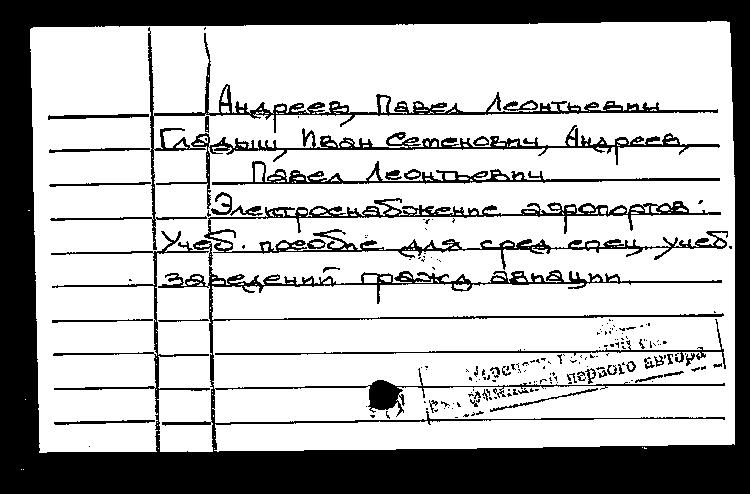 Андреев, Павел Леонтьевич
Гладыш, Иван Семенович, Андреев,
Павел Леонтьевич
Электроснабжение аэропортов:
Учеб. пособие для сред спец учеб.
заведений гражд авиации.
первого автора